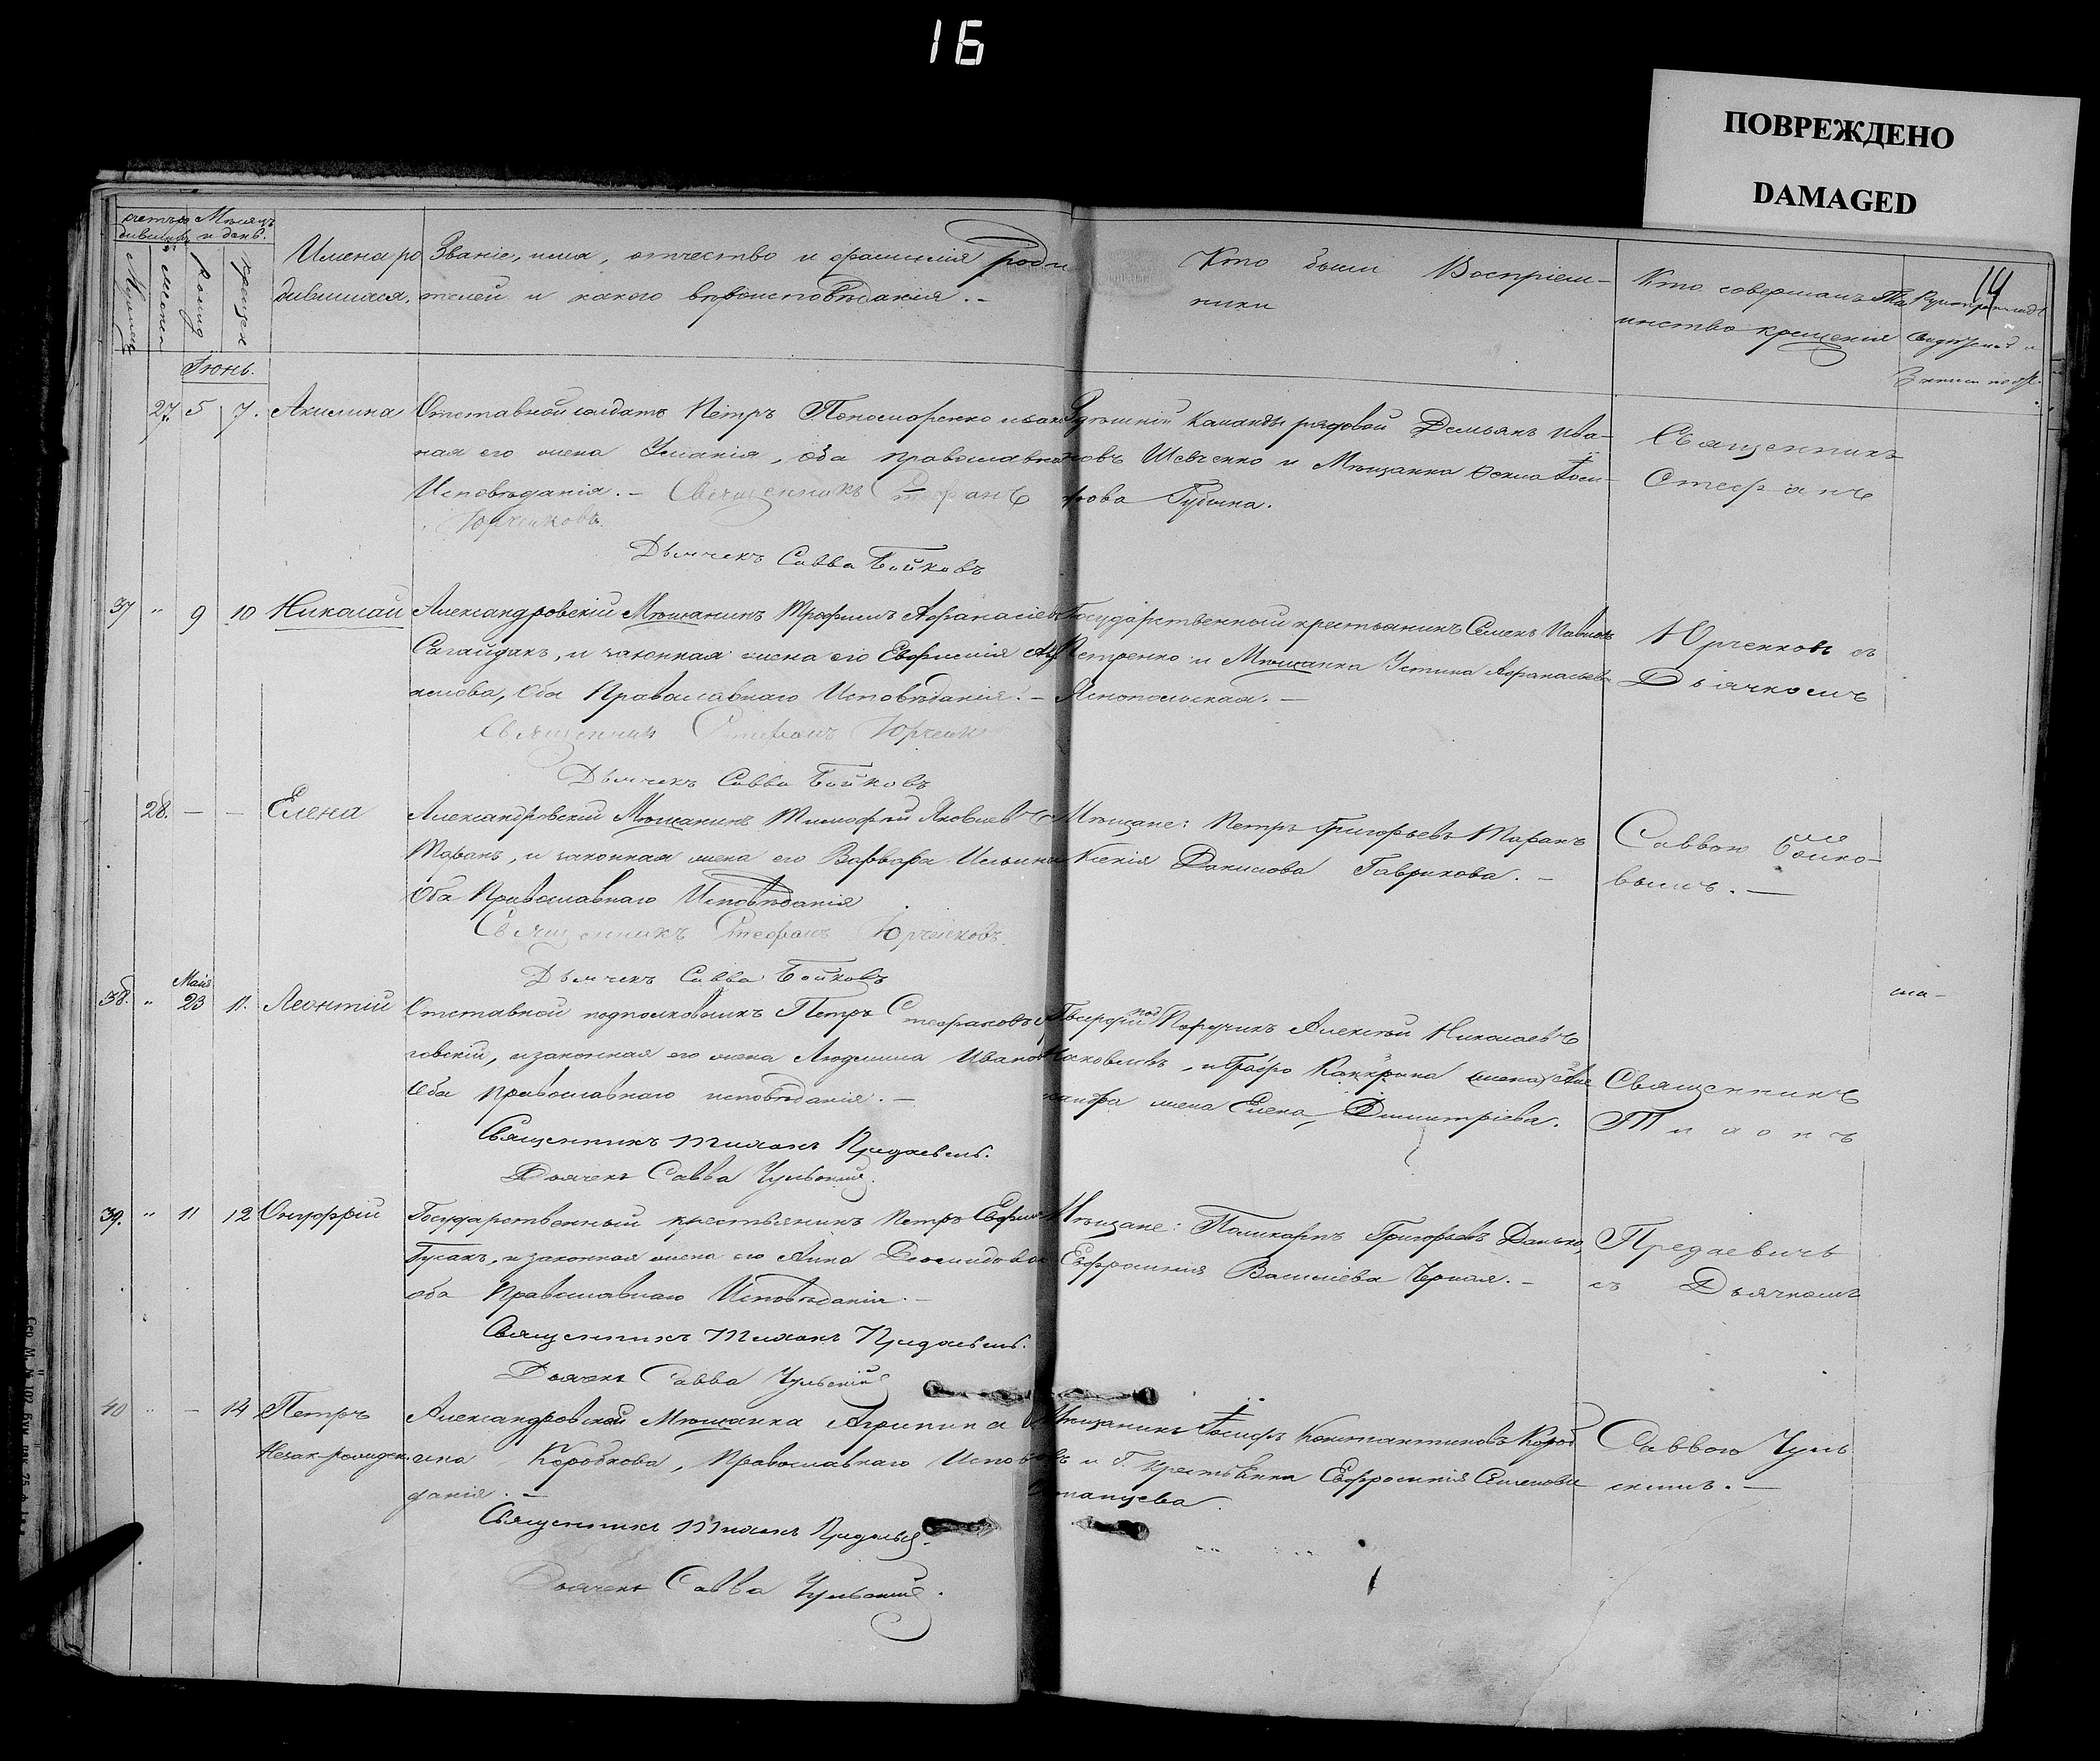 16
ПОВРЕЖДЕНО
DAMAGED
14
Счетъ ро Мѣсяцъ
дившихъ и день.
Имена ро
дившихся.
Званіе, имя, отчество и фамилія роди
телей и какого вѣроисповѣданія. -
Кто были Воспріем-
ники
Кто совершалъ Таи
инство крещенія
Іюнь.
27. 5 7. Акилина
Отставной солдатъ Петръ Пономаренко и закон
ная его жена, оба православнаго
Исповѣданія. - Священникъ Стефанъ
Юрченковъ.
Дьячекъ Савва Бойковъ
Команды рядовой Демьянъ Ива-
новъ Шевченко и Мѣщанка Ѳекла Іоси-
фова Губина.
Священникъ
Стефанъ
37 " 9 10 Николай
Александровскій Мѣщанинъ Трофимъ Афанасіевъ
Сагайдакъ, и законная жена его Евфимія
Оба Православнаго Исповѣданія. -
Священникъ Стефанъ Юрченк
Дьячекъ Савва Бойковъ
Государственный крестьянинъ Семенъ Павловъ
Петренко и Мѣщанка Устина Афанасьева
Яснопольская. -
Юрченковъ съ
Дьячкомъ
28. - - Елена
Александровскій Мѣщанинъ Тимофей Яковлевъ
Таранъ, и законная жена его Варвара Ильина
Оба Православнаго Исповѣданія
Священникъ Стефанъ Юрченковъ.
Дьячекъ Савва Бойковъ
Мѣщане: Петръ Григорьевъ Таранъ
Ксенія Данилова Гаврикова. -
Саввою Бойко-
вымъ. -
38. " Маія 23 11. Леонтій
Отставной подполковникъ Петръ Стефановъ
говскій, и законная его жена Людмила Иванова
Оба православнаго исповѣданія. -
Священникъ Тихонъ Предаевичъ.
Дьячекъ Савва Чульскій.
Гвардіи под Поручикъ Алексѣй Николаевъ
Яковлевъ, и Графа Канкрина
жена Елена Димитріева.
Священникъ
Тихонъ
39. " 11 12 Онуфрій
Государственный крестьянинъ Петръ Ефимовъ
Гусакъ, и законная жена его Анна Деомидова
оба Православнаго Исповѣданія. -
Священникъ Тихонъ Предаевичъ.
Дьячекъ Савва Чульскій
Мѣщане: Поликарпъ Григорьевъ Данько,
Евфросинія Василіева Черная. -
Предаевичъ
съ Дьячкомъ
40 " - 14 Петръ
Незак. рожден.
Александровская Мѣщанка Агрипина
Коробкова, Православнаго Исповѣ
данія. -
Священникъ Тихонъ Предаевичъ.
Дьячекъ Савва Чульскій.
Мѣщанинъ Іосифъ Константиновъ Короб
ковъ и Г. крестьянка Евфросинія Семенова
Саввою Чуль
скимъ. -